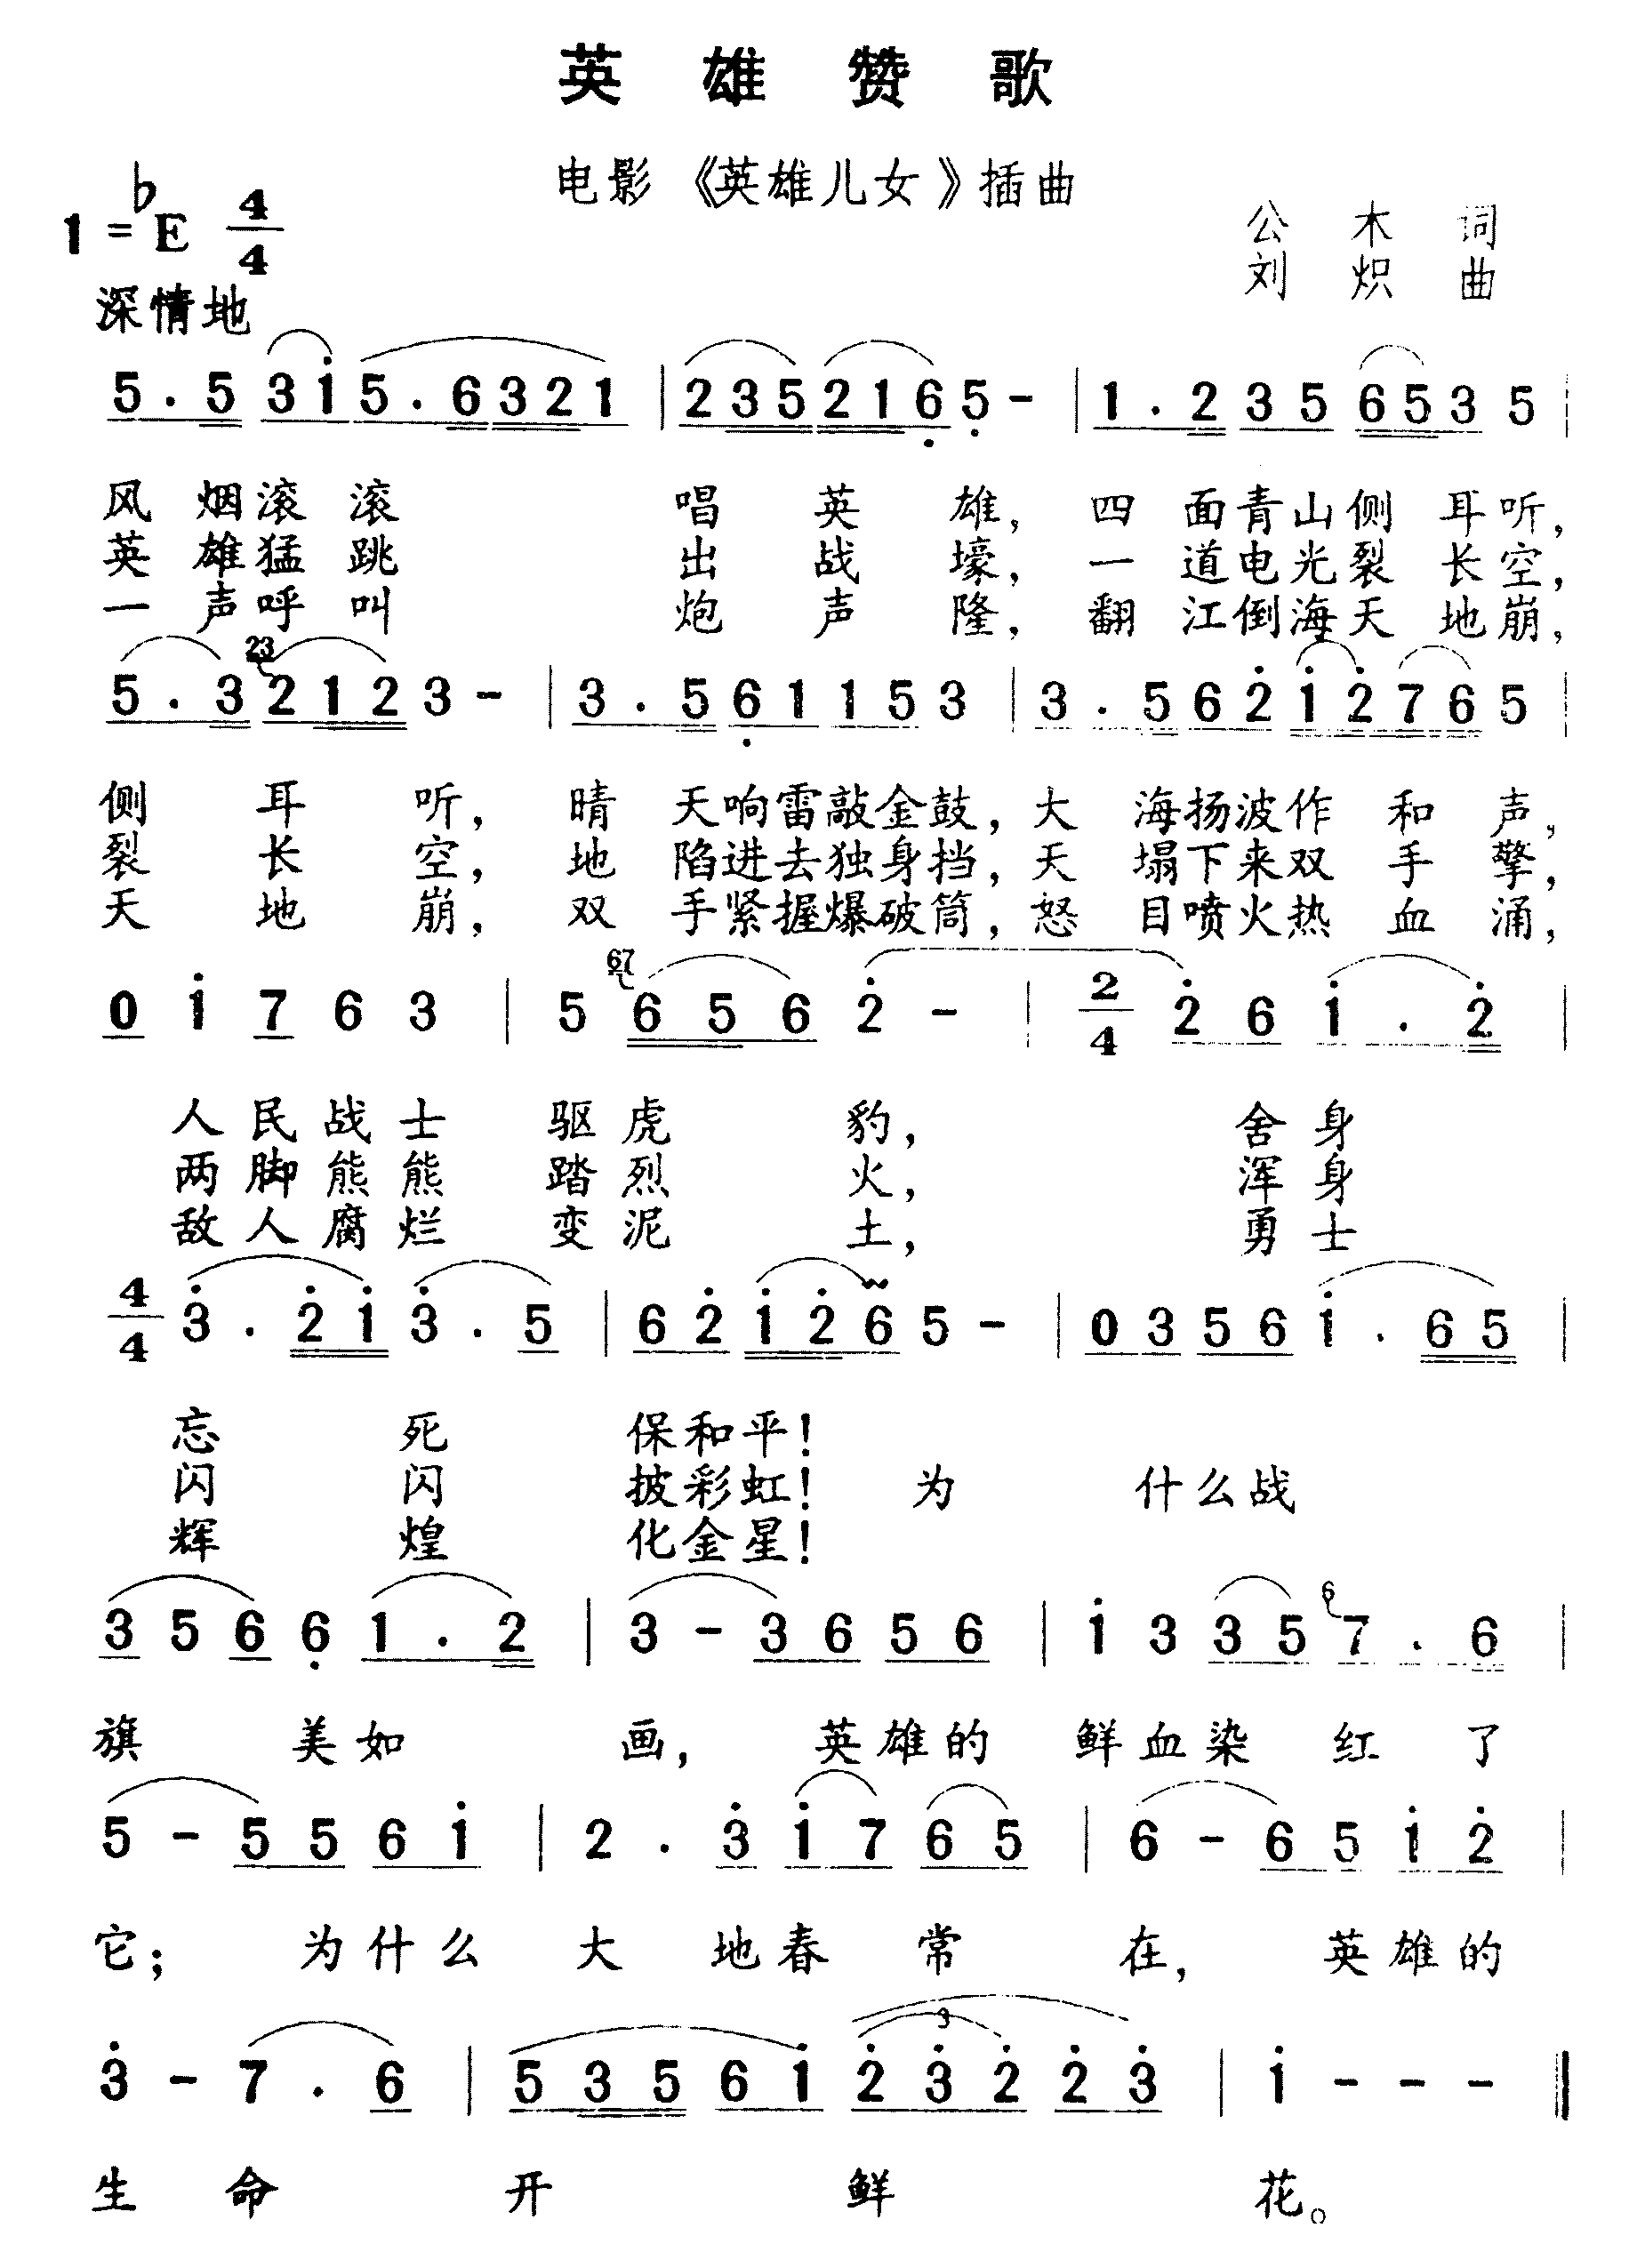 英雄赞歌
电影《英雄儿女》插曲
1=♭E 4/4
公木 词
刘炽 曲
深情地
5·5 3i 5·6 321 | 235 216 5 - | 1·2 35 653 5 |
风烟滚滚 唱英雄，四面青山侧耳听，
英雄猛跳 出战壕，一道电光裂长空，
一声呼叫 炮声隆，翻江倒海天地崩，
23
5·3 212 3 - | 3·5 61 15 3 | 3·5 62 1276 5 |
侧耳听，晴天响雷敲金鼓，大海扬波作和声，
裂长空，地陷进去独身挡，天塌下来双手擎，
天地崩，双手紧握爆破筒，怒目喷火热血涌，
67
0 i 7 6 3 | 5 656 2 - | 2/4 26 i·2 |
人民战士驱虎豹，舍身
两脚熊熊踏烈火，浑身
敌人腐烂变泥土，勇士
4/4 3·2i 3·5 | 62 i26 5 - | 03 56 i·65 |
忘死保和平！
闪闪披彩虹！为什么战
辉煌化金星！
6
3 5 6 6 1·2 | 3 - 36 56 | i 3 35 7·6 |
旗美如画，英雄的鲜血染红了
5 - 55 6i | 2·3 i7 65 | 6 - 65 i2 |
它；为什么大地春常在，英雄的
3
3 - 7·6 | 535 6i 232 23 | i - - - ‖
生命开鲜花。